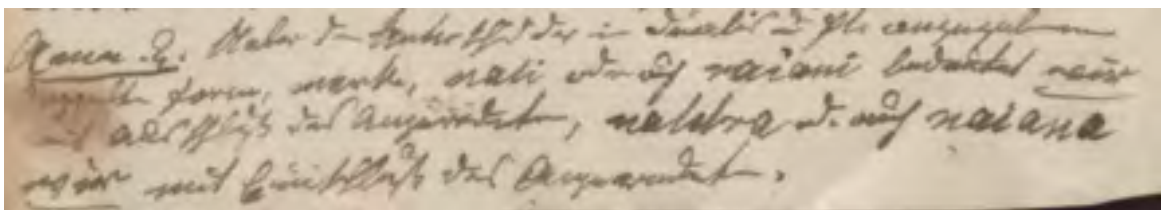 Anm. 2. Ueber den Unterschied der in Dualis u. Pl. angegebenen
doppelte Form, merke, nali oder auch raiani bedeutet wir
mit Ausschluß des Angeredeten, od. auch naiana
wir mit Einschluß des Angeredeten.